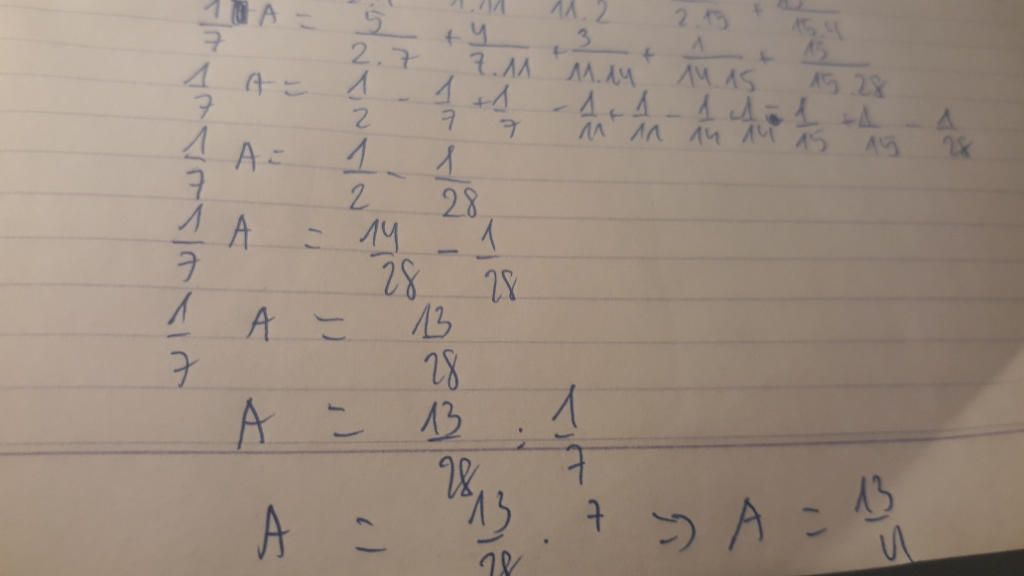 1/7 A = 5/2.7 + 4/7.11 + 3/11.14 + 1/14.15 + 13/15.28
1/7 A = 1/2 - 1/7 + 1/7 - 1/11 + 1/11 - 1/14 + 1/14 - 1/15 + 1/15 - 1/28
1/7 A = 1/2 - 1/28
1/7 A = 14/28 - 1/28
1/7 A = 13/28
A = 13/28 : 1/7
A = 13/28 . 7 => A = 13/4